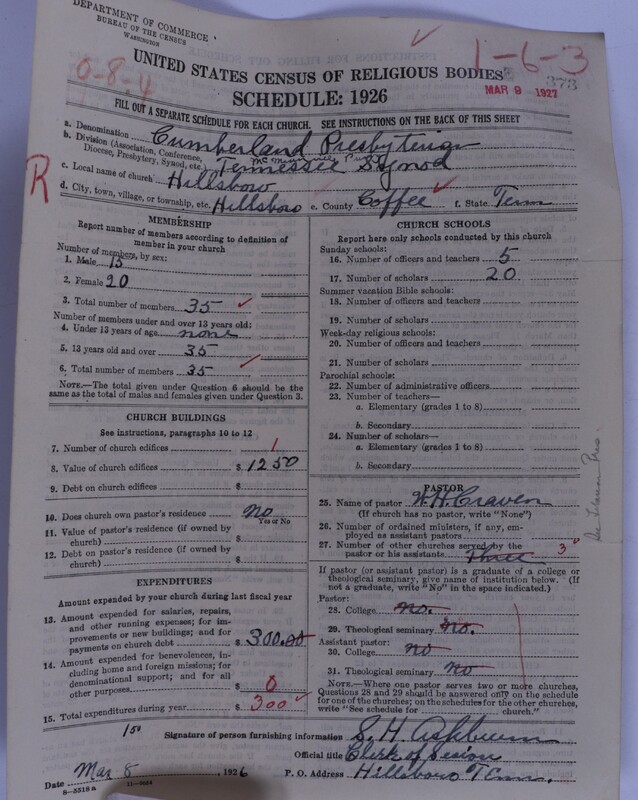 DEPARTMENT OF COMMERCE
BUREAU OF THE CENSUS
WASHINGTON
0-8-4
1-6-3
373
MAR 9 1927
UNITED STATES CENSUS OF RELIGIOUS BODIES
SCHEDULE: 1926
FILL OUT A SEPARATE SCHEDULE FOR EACH CHURCH. SEE INSTRUCTIONS ON THE BACK OF THIS SHEET
R
a. Denomination Cumberland Presbyterian
b. Division (Association, Conference, Diocese, Presbytery, Synod, etc. Tennessee Synod
c. Local name of church Hillsboro
d. City, town, village, or township, etc. Hillsboro e. County Coffee f. State Tenn
MEMBERSHIP
Report number of members according to definition of
member in your church
Number of members, by sex:
1. Male 15
2. Female 20
3. Total number of members 35
Number of members under and over 13 years old:
4. Under 13 years of age none
5. 13 years old and over 35
6. Total number of members 35
NOTE.—The total given under Question 6 should be
same as the total of males and females given under Question 3.
CHURCH BUILDINGS
See instructions, paragraphs 10 to 12
7. Number of church edifices 1
8. Value of church edifices $ 1250
9. Debt on church edifices $
10. Does church own pastor's residence No
Yes or No
11. Value of pastor's residence (if owned by
church) $
12. Debt on pastor's residence (if owned by
church) $
EXPENDITURES
Amount expended by your church during last fiscal year
13. Amount expended for salaries, repairs,
and other running expenses; for im-
provements or new buildings; and for
payments on church debt $ 300.00
14. Amount expended for benevolences, in-
cluding home and foreign missions; for
denominational support; and for all
other purposes $ 0
15. Total expenditures during year $ 300
CHURCH SCHOOLS
Report here only schools conducted by this church
Sunday schools:
16. Number of officers and teachers 5
17. Number of scholars 20
Summer vacation Bible schools:
18. Number of officers and teachers
19. Number of scholars
Week-day religious schools:
20. Number of officers and teachers
21. Number of scholars
Parochial schools:
22. Number of administrative officers
23. Number of teachers—
a. Elementary (grades 1 to 8)
b. Secondary
24. Number of scholars—
a. Elementary (grades 1 to 8)
b. Secondary
PASTOR
25. Name of pastor W.H. Craven
(If church has no pastor, write "None")
26. Number of ordained ministers, if any, em-
ployed as assistant pastors
27. Number of other churches served by the
pastor or his assistants Three 3
If pastor (or assistant pastor) is a graduate of a college or
theological seminary, give name of institution below. (If
not a graduate, write "No" in the space indicated.)
Pastor:
28. College no.
29. Theological seminary no.
Assistant pastor:
30. College no
31. Theological seminary no
NOTE.—Where one pastor serves two or more churches,
Questions 28 and 29 should be answered only on the schedule
for one of the churches; on the schedules for the other churches,
write "See schedule for church."
150
Signature of person furnishing information S. H. Ashburn
Official title Clerk of Session
Date Mar 8, 1926 P. O. Address Hillsboro Tenn.
8-5518a 11-9034